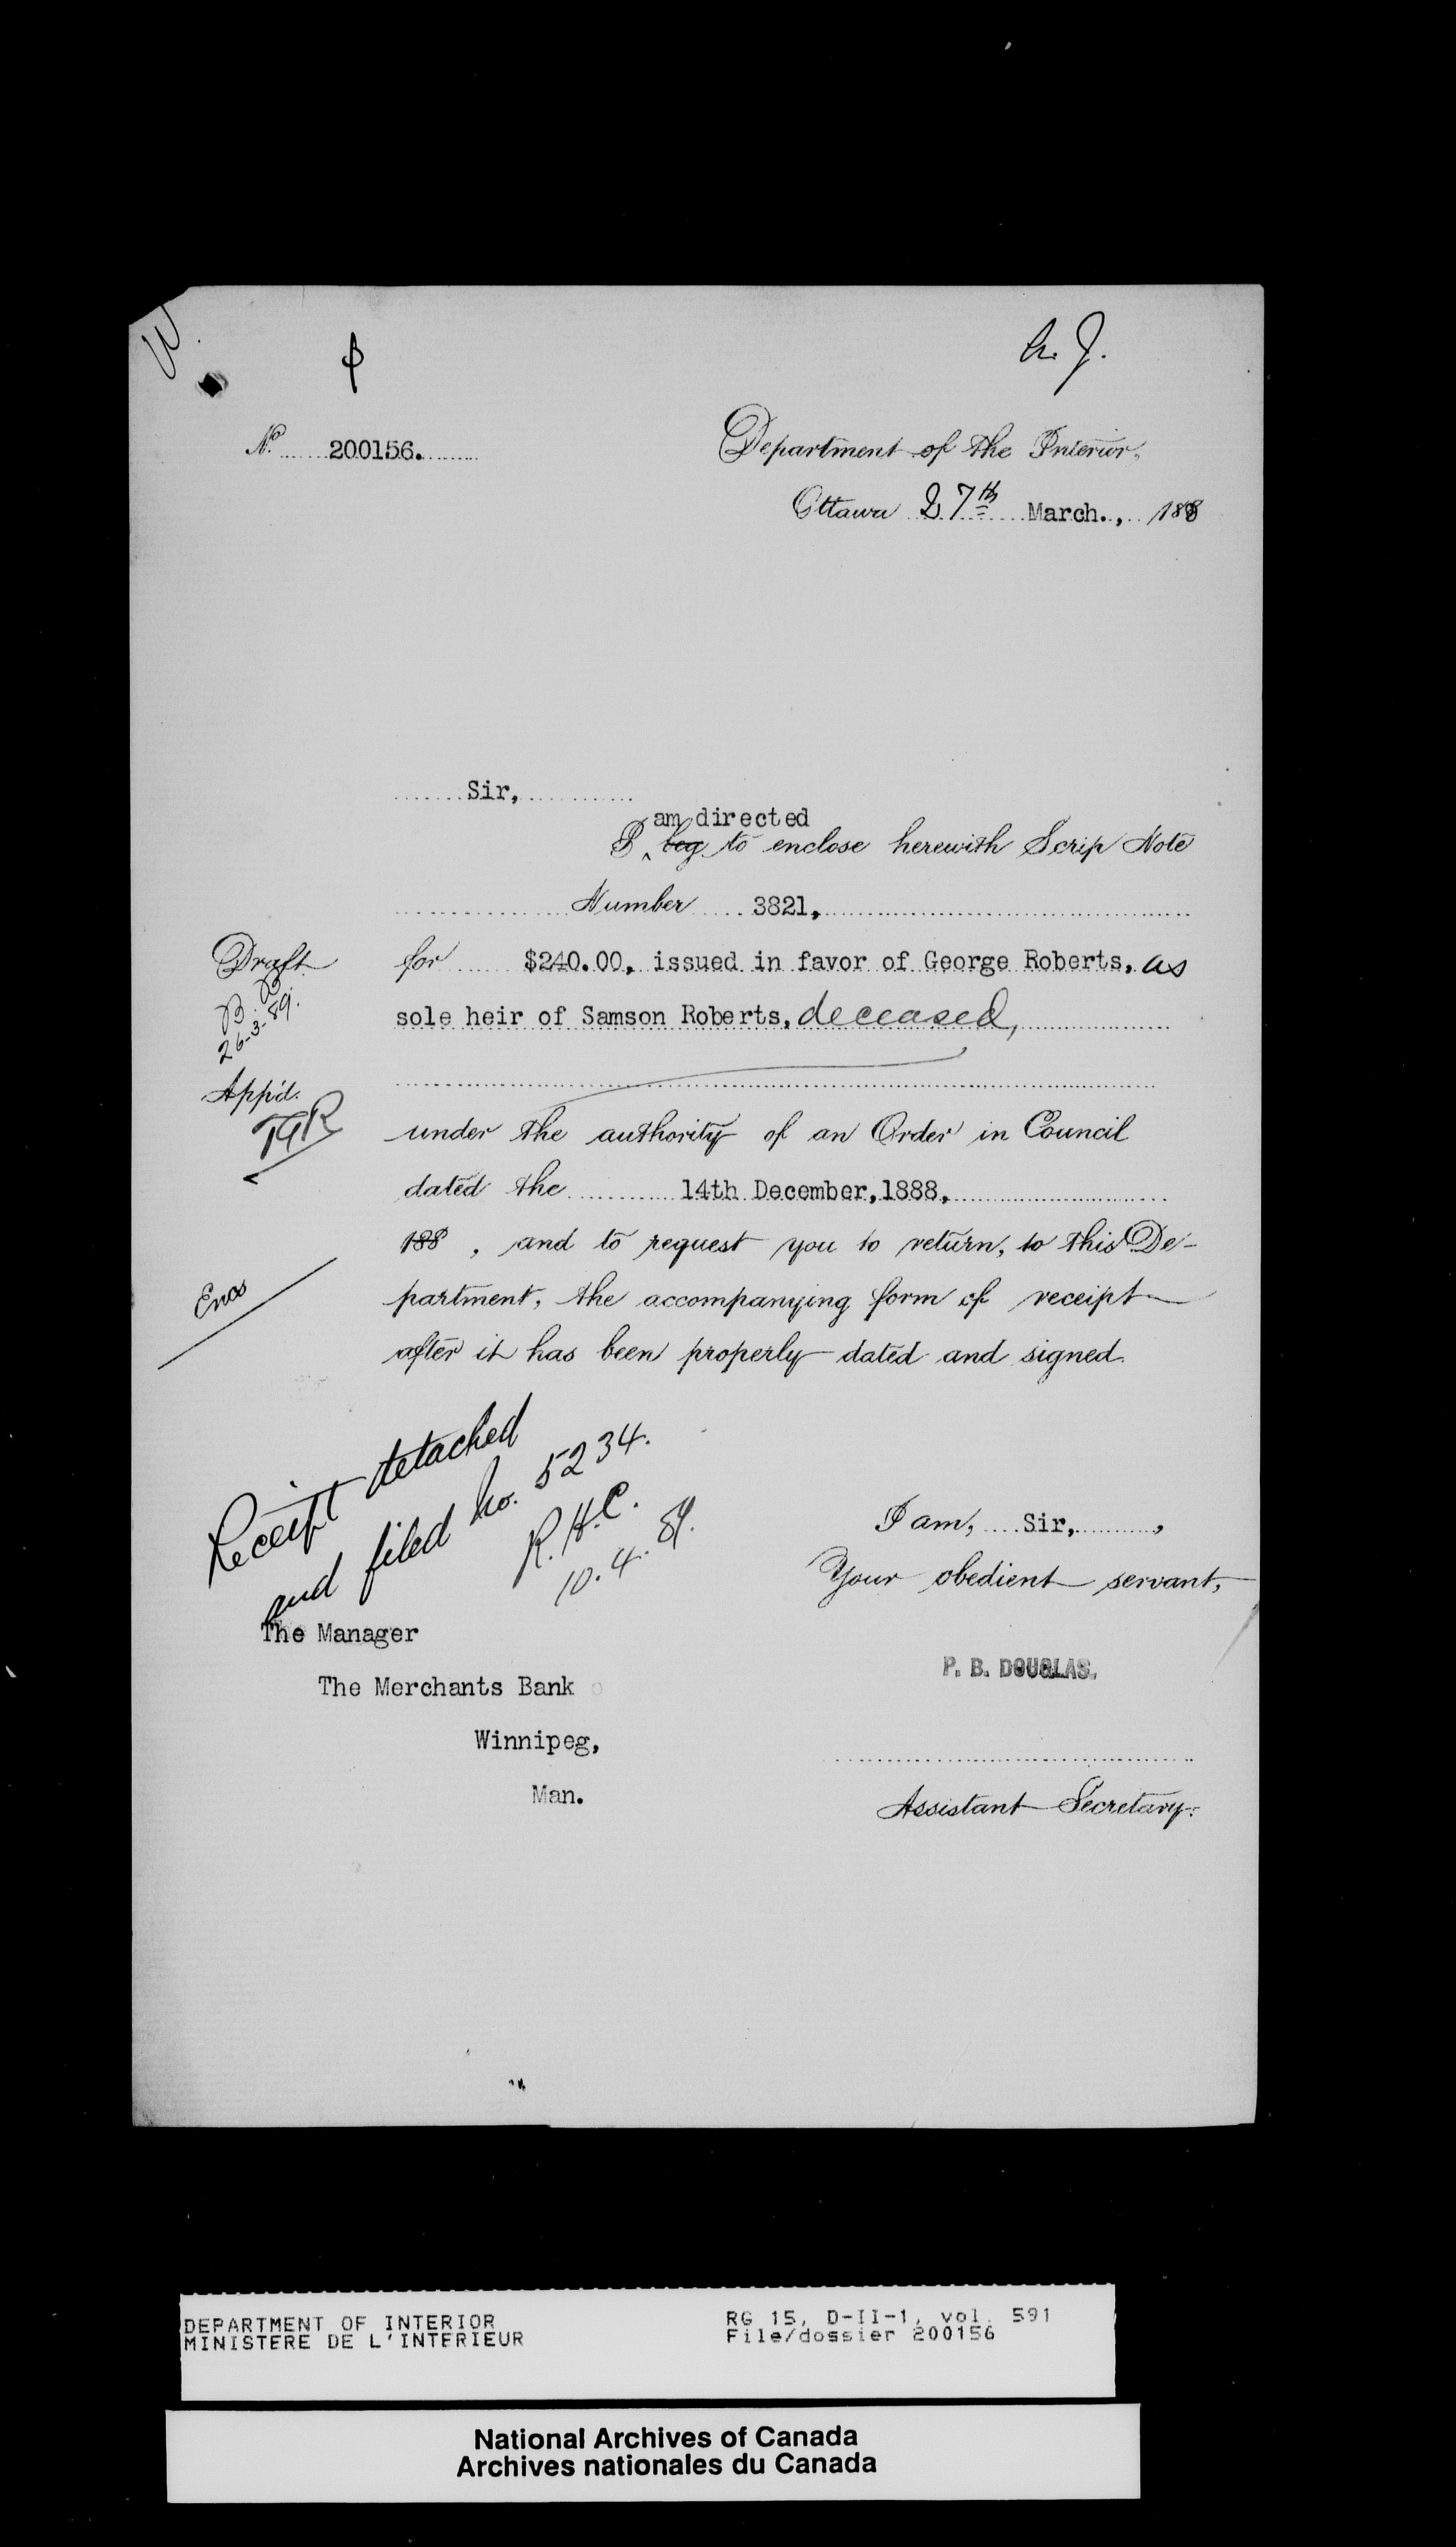 W.
A. J.
No. 200156.
Department of the Interior,
Ottawa 27th March., 188
Sir,
am directed
I beg to enclose herewith Scrip Note
Number 3821,
for $240.00, issued in favor of George Roberts, as
sole heir of Samson Roberts, deceased,
Draft
26-3-89.
App'd.
under the authority of an Order in Council
dated the 14th December, 1888,
188 , and to request you to return, to this De-
partment, the accompanying form of receipt
after it has been properly dated and signed.
Encs
Receipt detached
and filed No. 5234.
R.H.C.
10.4.89.
I am, Sir, ,
Your obedient servant,
P. B. DOUGLAS.
Assistant Secretary.
The Manager
The Merchants Bank
Winnipeg,
Man.
DEPARTMENT OF INTERIOR
MINISTERE DE L'INTERIEUR
RG 15, D-II-1, vol. 591
File/dossier 200156
National Archives of Canada
Archives nationales du Canada